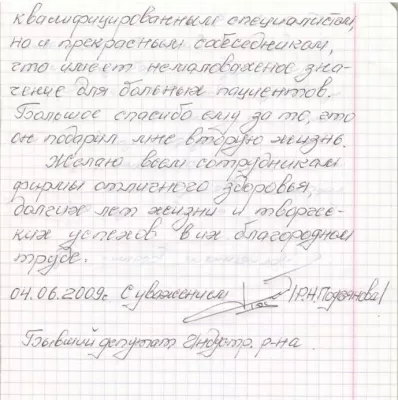 квалифицированным специалистом,
но и прекрасным собеседником,
что имеет немаловажное зна-
чение для больных пациентов.
Большое спасибо ему за то, что
он подарил мне вторую жизнь.
Желаю всем сотрудникам
фирмы отличного здоровья,
долгих лет жизни и творчес-
ких успехов в их благородном
труде.
04.06.2009г. С уважением /Р.Н.
Бывший депутат Индустр. р-на.